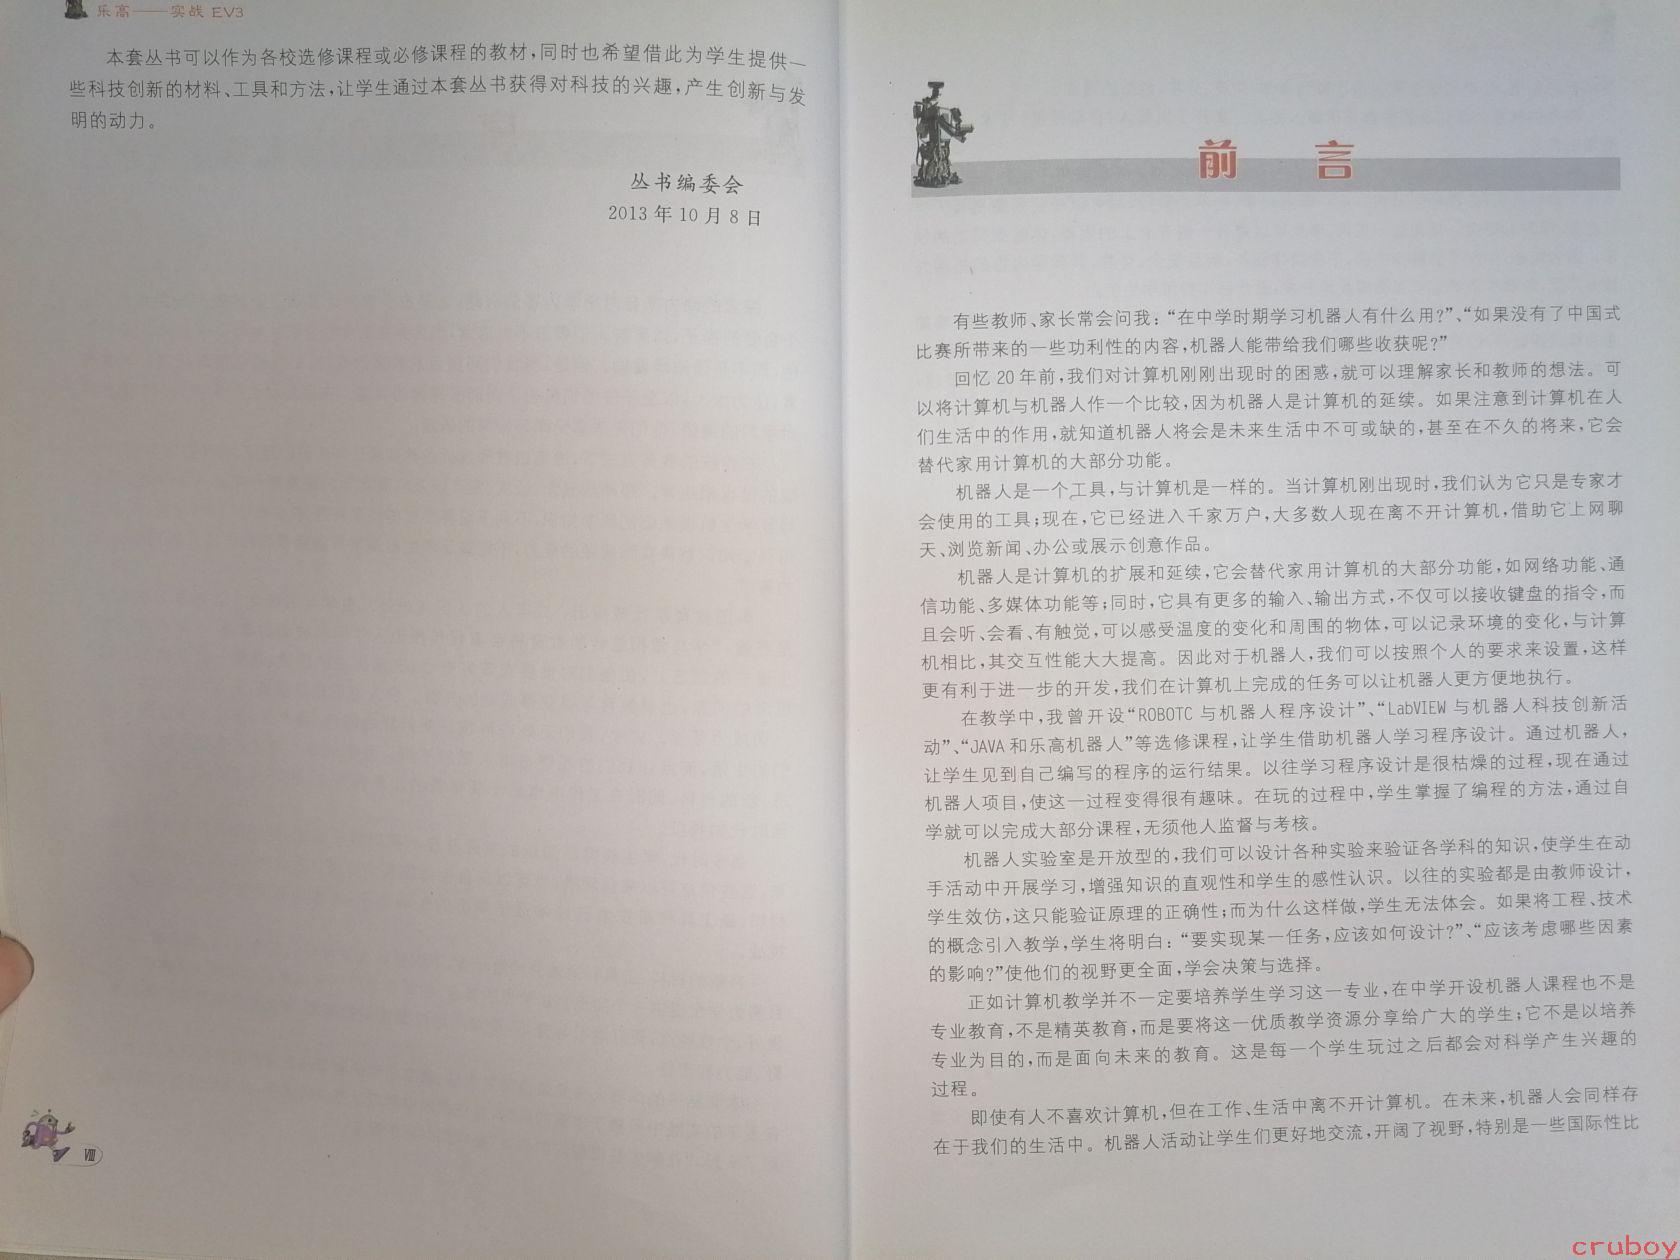 乐高——实战 EV3
本套丛书可以作为各校选修课程或必修课程的教材,同时也希望借此为学生提供一
些科技创新的材料、工具和方法,让学生通过本套丛书获得对科技的兴趣,产生创新与发
明的动力。
丛书编委会
2013 年 10 月 8 日
Ⅷ
前 言
有些教师、家长常会问我:“在中学时期学习机器人有什么用?”、“如果没有了中国式
比赛所带来的一些功利性的内容,机器人能带给我们哪些收获呢?”
回忆 20 年前,我们对计算机刚刚出现时的困惑,就可以理解家长和教师的想法。可
以将计算机与机器人作一个比较,因为机器人是计算机的延续。如果注意到计算机在人
们生活中的作用,就知道机器人将会是未来生活中不可或缺的,甚至在不久的将来,它会
替代家用计算机的大部分功能。
机器人是一个工具,与计算机是一样的。当计算机刚出现时,我们认为它只是专家才
会使用的工具;现在,它已经进入千家万户,大多数人现在离不开计算机,借助它上网聊
天、浏览新闻、办公或展示创意作品。
机器人是计算机的扩展和延续,它会替代家用计算机的大部分功能,如网络功能、通
信功能、多媒体功能等;同时,它具有更多的输入、输出方式,不仅可以接收键盘的指令,而
且会听、会看、有触觉,可以感受温度的变化和周围的物体,可以记录环境的变化,与计算
机相比,其交互性能大大提高。因此对于机器人,我们可以按照个人的要求来设置,这样
更有利于进一步的开发,我们在计算机上完成的任务可以让机器人更方便地执行。
在教学中,我曾开设“ROBOTC 与机器人程序设计”、“LabVIEW 与机器人科技创新活
动”、“JAVA 和乐高机器人”等选修课程,让学生借助机器人学习程序设计。通过机器人,
让学生见到自己编写的程序的运行结果。以往学习程序设计是很枯燥的过程,现在通过
机器人项目,使这一过程变得很有趣味。在玩的过程中,学生掌握了编程的方法,通过自
学就可以完成大部分课程,无须他人监督与考核。
机器人实验室是开放型的,我们可以设计各种实验来验证各学科的知识,使学生在动
手活动中开展学习,增强知识的直观性和学生的感性认识。以往的实验都是由教师设计,
学生效仿,这只能验证原理的正确性;而为什么这样做,学生无法体会。如果将工程、技术
的概念引入教学,学生将明白:“要实现某一任务,应该如何设计?”、“应该考虑哪些因素
的影响?”使他们的视野更全面,学会决策与选择。
正如计算机教学并不一定要培养学生学习这一专业,在中学开设机器人课程也不是
专业教育,不是精英教育,而是要将这一优质教学资源分享给广大的学生;它不是以培养
专业为目的,而是面向未来的教育。这是每一个学生玩过之后都会对科学产生兴趣的
过程。
即使有人不喜欢计算机,但在工作、生活中离不开计算机。在未来,机器人会同样存
在于我们的生活中。机器人活动让学生们更好地交流,开阔了视野,特别是一些国际性比
cruboy